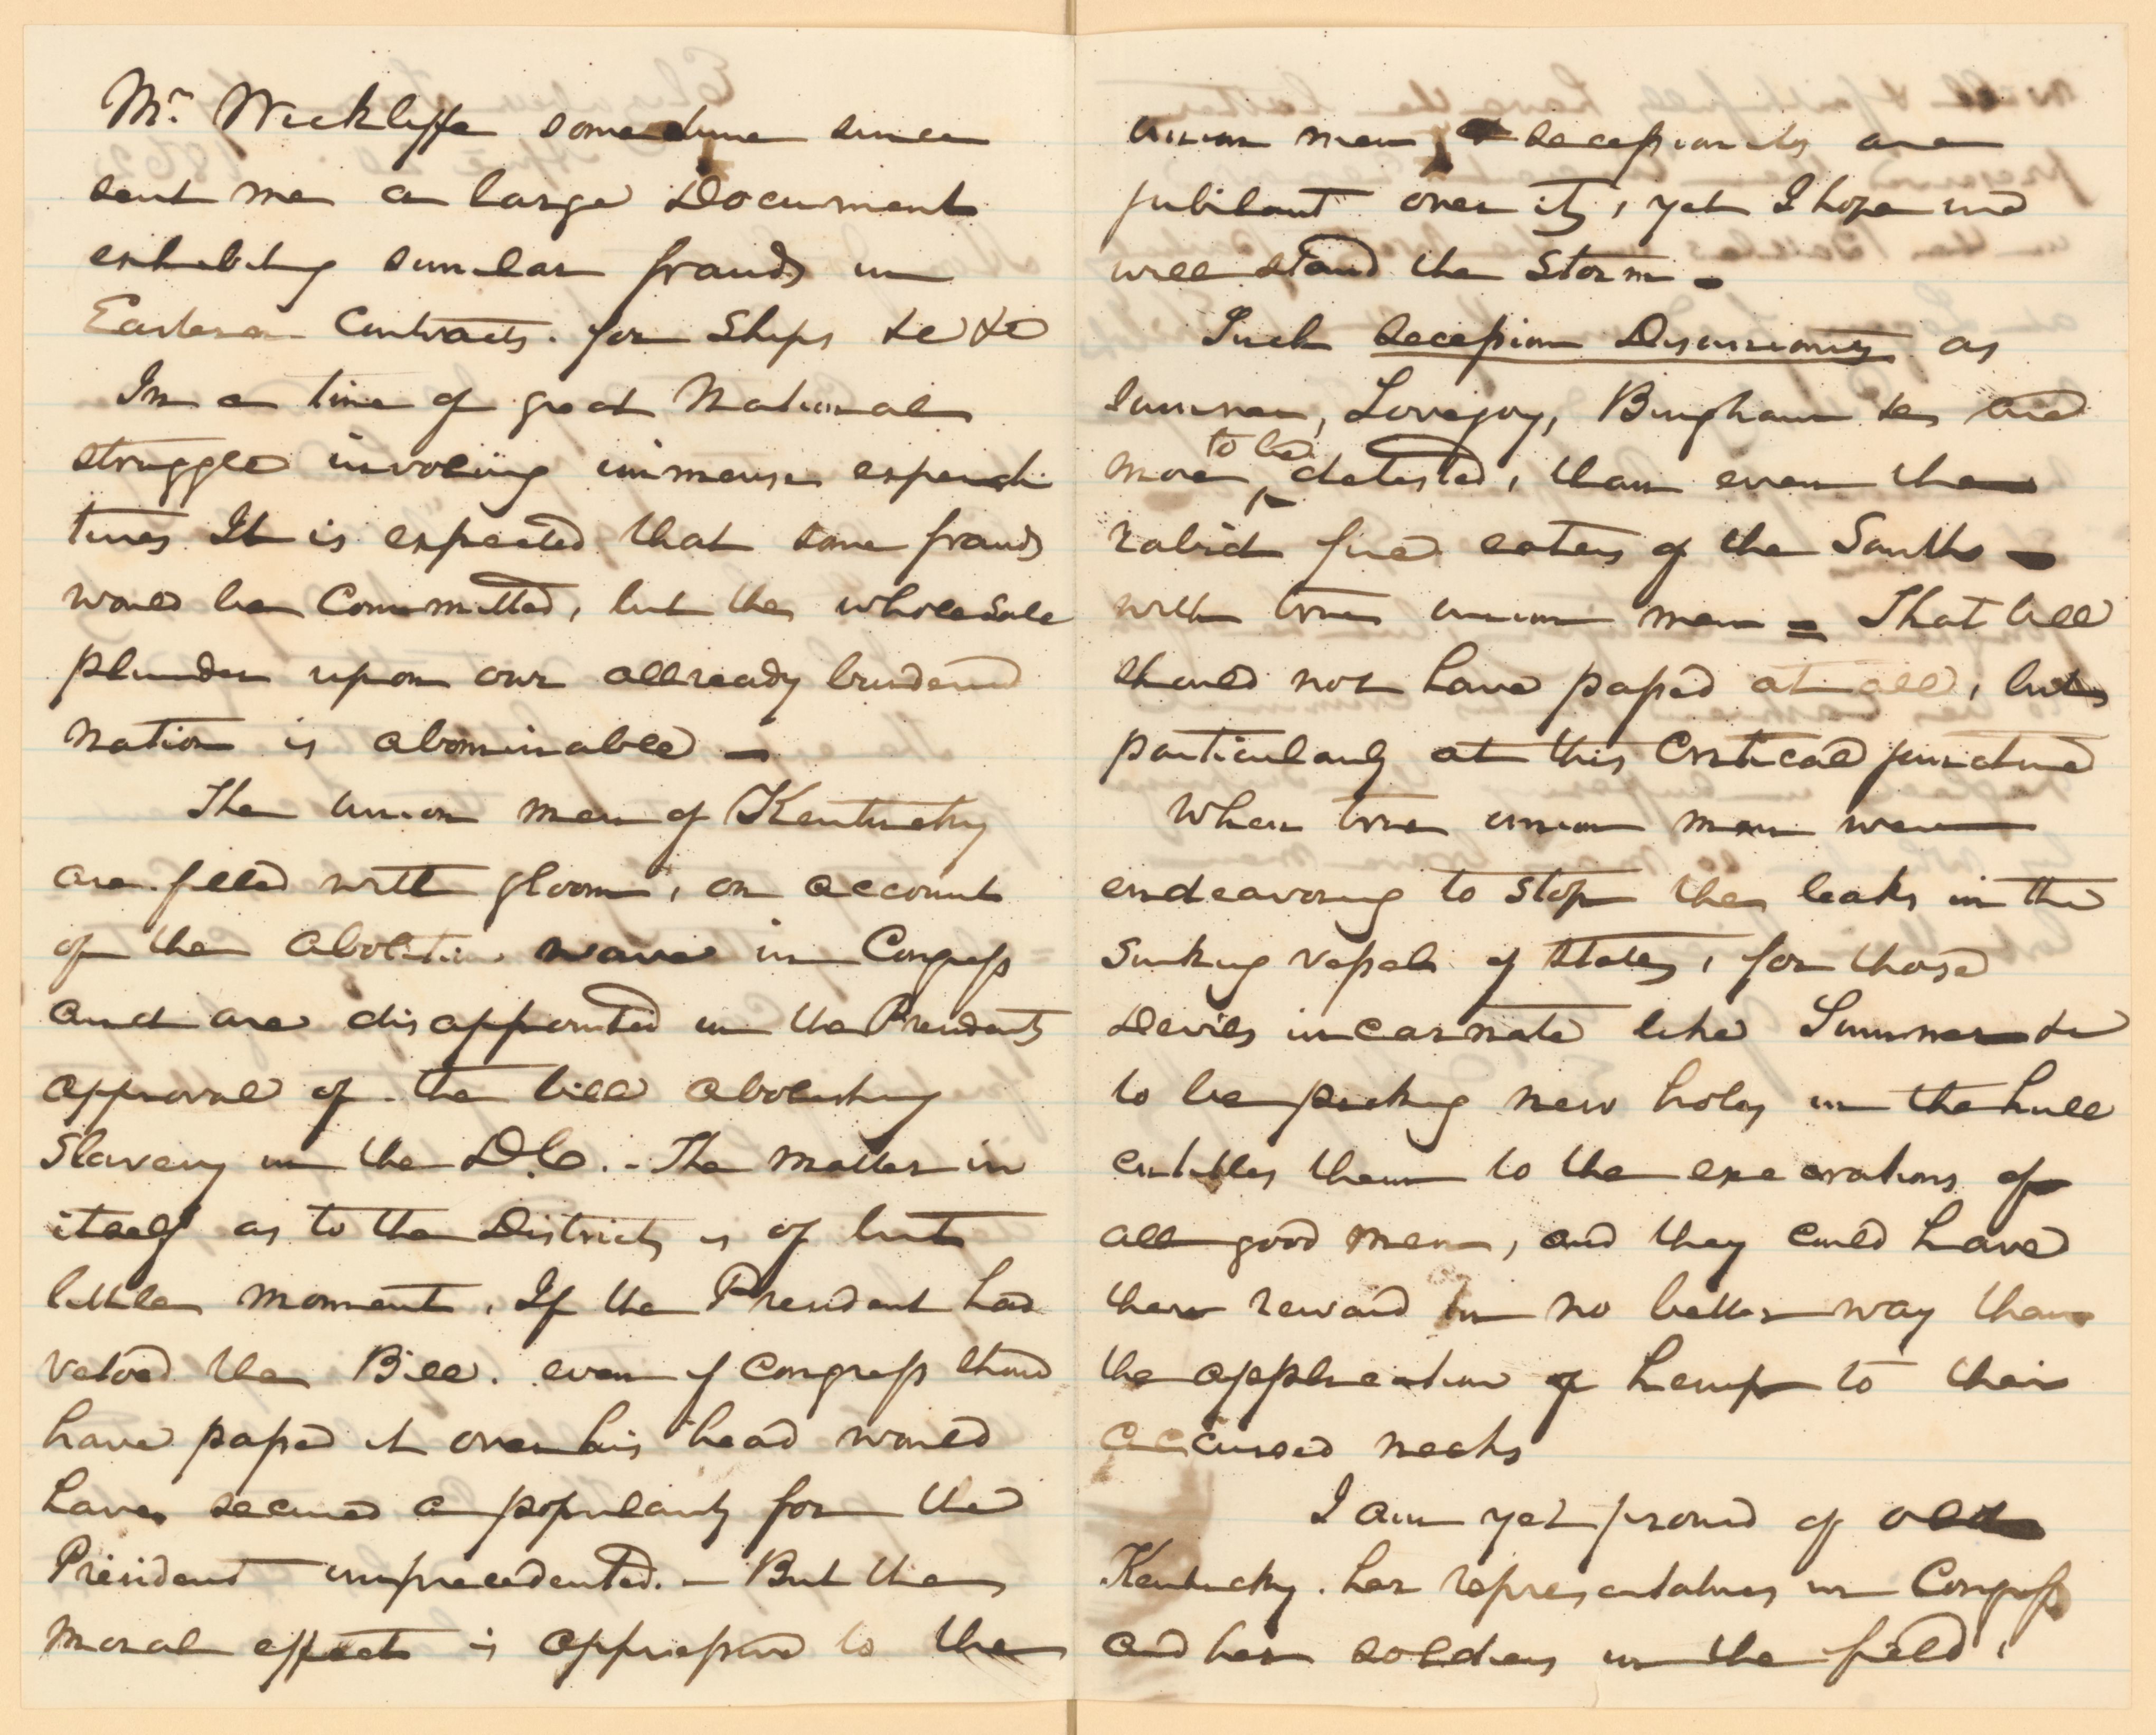 Mr. Wickliffe sometime since
sent me a large Document
exhibiting similar frauds in
Eastern Contracts. for Ships &c &c
In a time of great National
struggle involing immense expendi
tures It is expected that some frauds
would be Committed, but the wholesale
plunder upon our allready burdened
nation is abominable —
The Union men of Kentucky
are filled with gloom, on account
of the abolition wave in Congress
and are disappointed in the Presidents
approval of the bill abolishing
Slavery in the D.C. - The matter in
itself as to the District, is of but
little moment. If the President had
vetoed the Bill. even if Congress should
have passed it over his head would
have secured a popularity for the
President unprecedented. — But the
moral effect is oppressive to the
Union men, & secessionists are
jubilant over it, yet I hope we
will stand the Storm —
Such Secession Disunionists as
Sumner, Lovejoy, Bingham &c are
more to be detested, than even the
rabid fire eaters of the South —
with true union men = That bill
should not have passed at all, but
particularly at this Critical juncture
When true union men were
endeavoring to stop the leaks in the
Sinking vessel of State, for those
Devils incarnate like Sumner &c
to be picking new holes in the hull
entitles them to the execrations of
all good men, and they could have
their reward in no better way than
the application of hemp to their
accursed necks
I am yet proud of old
Kentucky. her representatives in Congress
and her soldiers in the field,